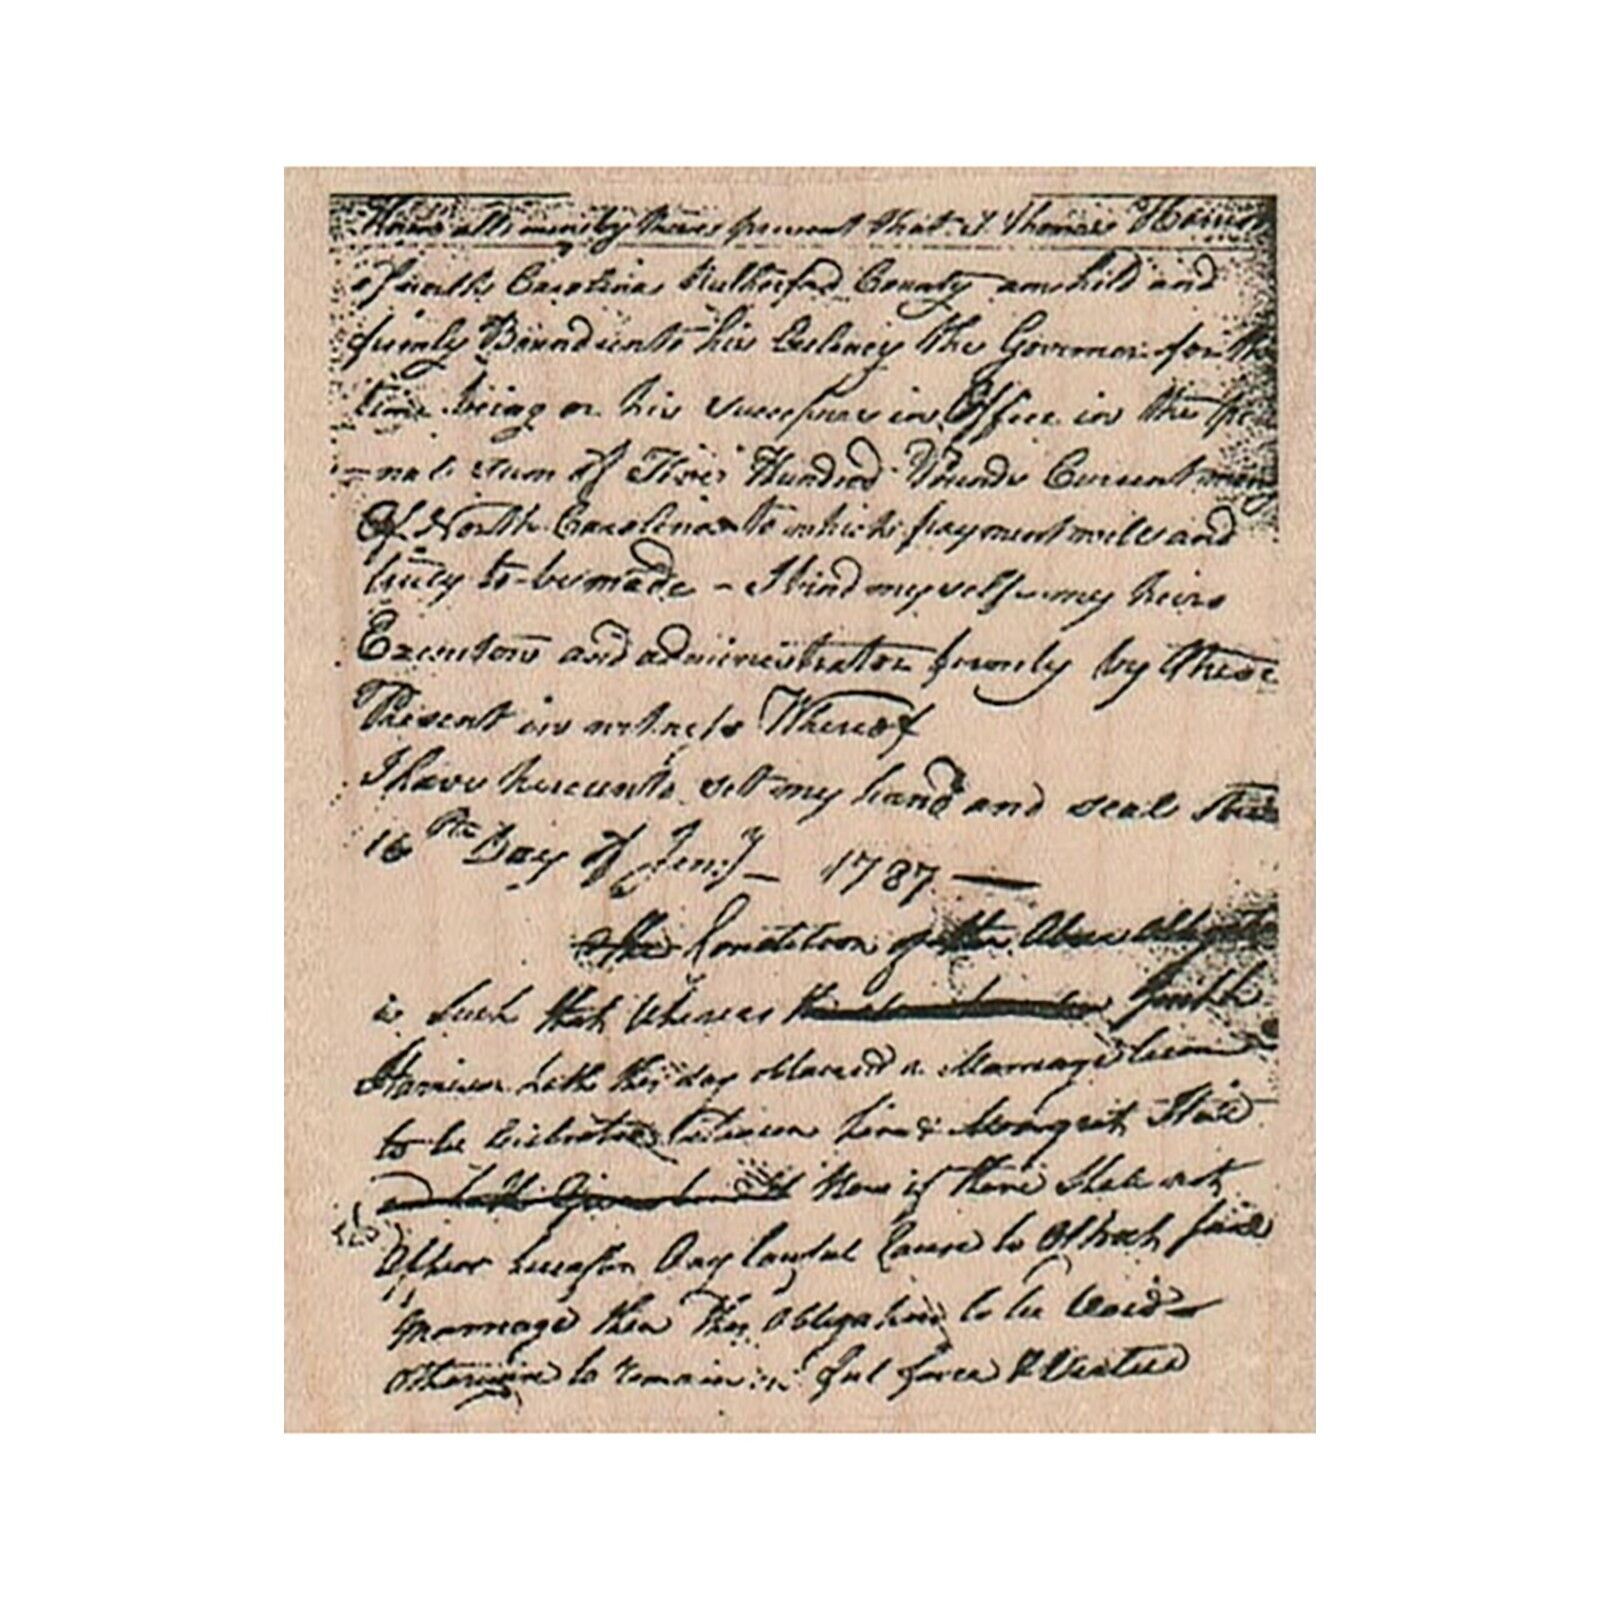 Know all men by these present that I Thomas
of north Carolina Rutherford County am held and
firmly Bound unto his the Governor for the
time being or his in Office in the pe
nal sum of Three Hundred Pounds Current money
Of North Carolina to which payment well and
truly to be made - I bind myself my heirs
Executors and administrator firmly by these
Present in witness Whereof
I have hereunto set my hand and seal this
16th Day of Jeny - 1787 —
The Condition of the Above
is Such that Whereas
hath this day a Marriage
to be between him &
Now if there
hereafter Any Lawful Cause to
marriage then this Obligation to be Void
otherwise to remain in ful force &